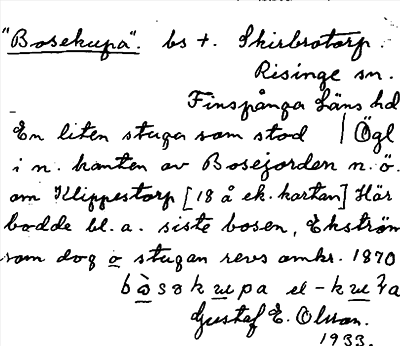 "Bosekupa". bs t. Skirbrotorp.
Risinge sn.
Finspånga Läns hd
En liten stuga som stod | Ögl
i n. kanten av Bosejorden n. ö.
om Klippestorp [18 å ek. kartan] Här
bodde bl. a. siste bosen, Ekström
som dog o stugan revs omkr. 1870
el -
Gustaf E. Olsson.
1933.